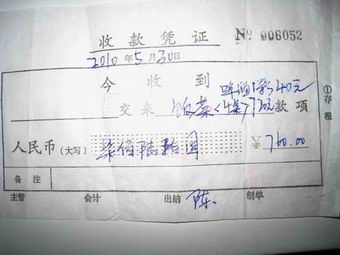 收款凭证 No 006052
2010年5月30日
今收到 啤酒 40元
交来 饭菜 720元 款项
人民币(大写) 柒佰陆拾圆 ¥760.00
备注
主管 会计 出纳 陈 制单
①存根